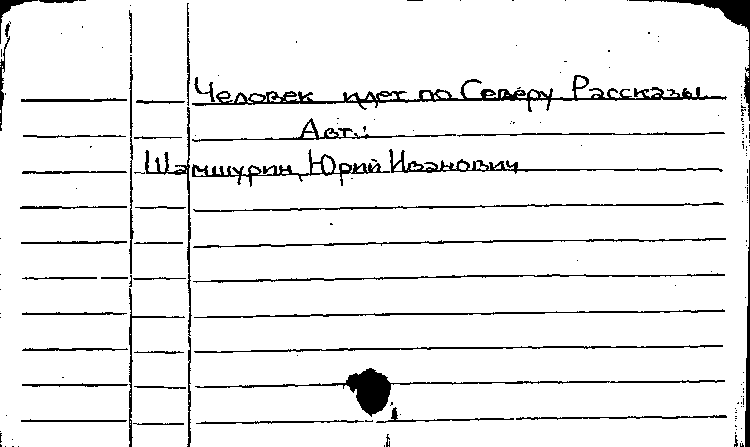 Человек идет по Северу Рассказы
Авт.:
Шамшурин, Юрий Иванович